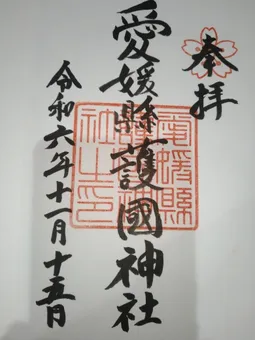 奉拝
愛媛縣護國神社
令和六年十一月十五日
愛媛縣
護國神
社之印